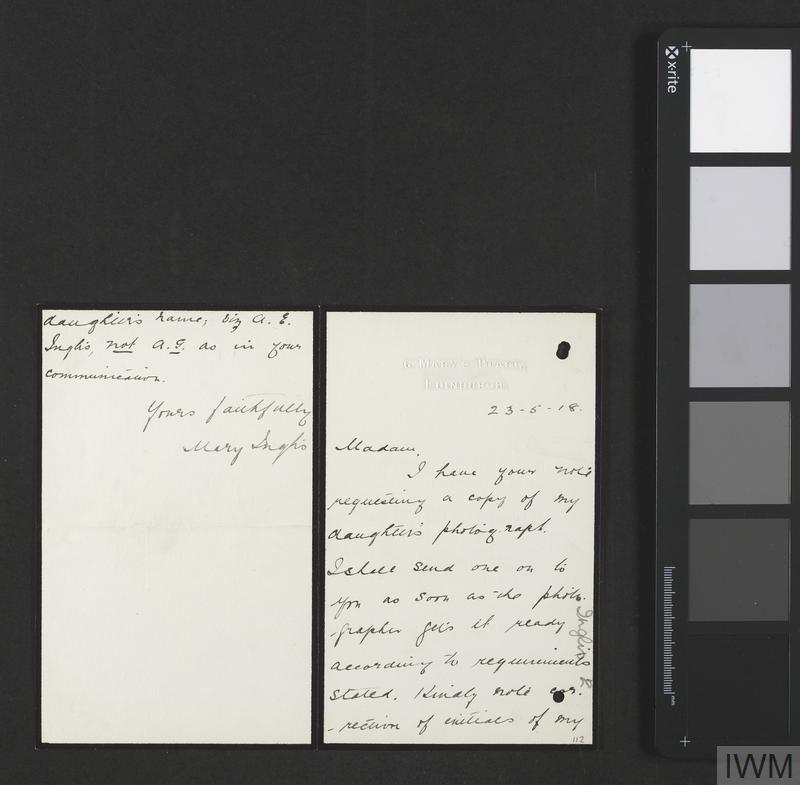 6. Mary's Place,
Edinburgh.
23-5-18.
Madam,
I have your note
requesting a copy of my
daughter's photograph.
I shall send one on to
you as soon as the photo-
-grapher gets it ready
according to requirements
stated. Kindly note cor-
-rection of initials of my
Inglis
112
daughter's name; viz A. E.
Inglis, not A. G. as in your
communication.
Yours faithfully
Mary Inglis
x-rite
mm
IWM